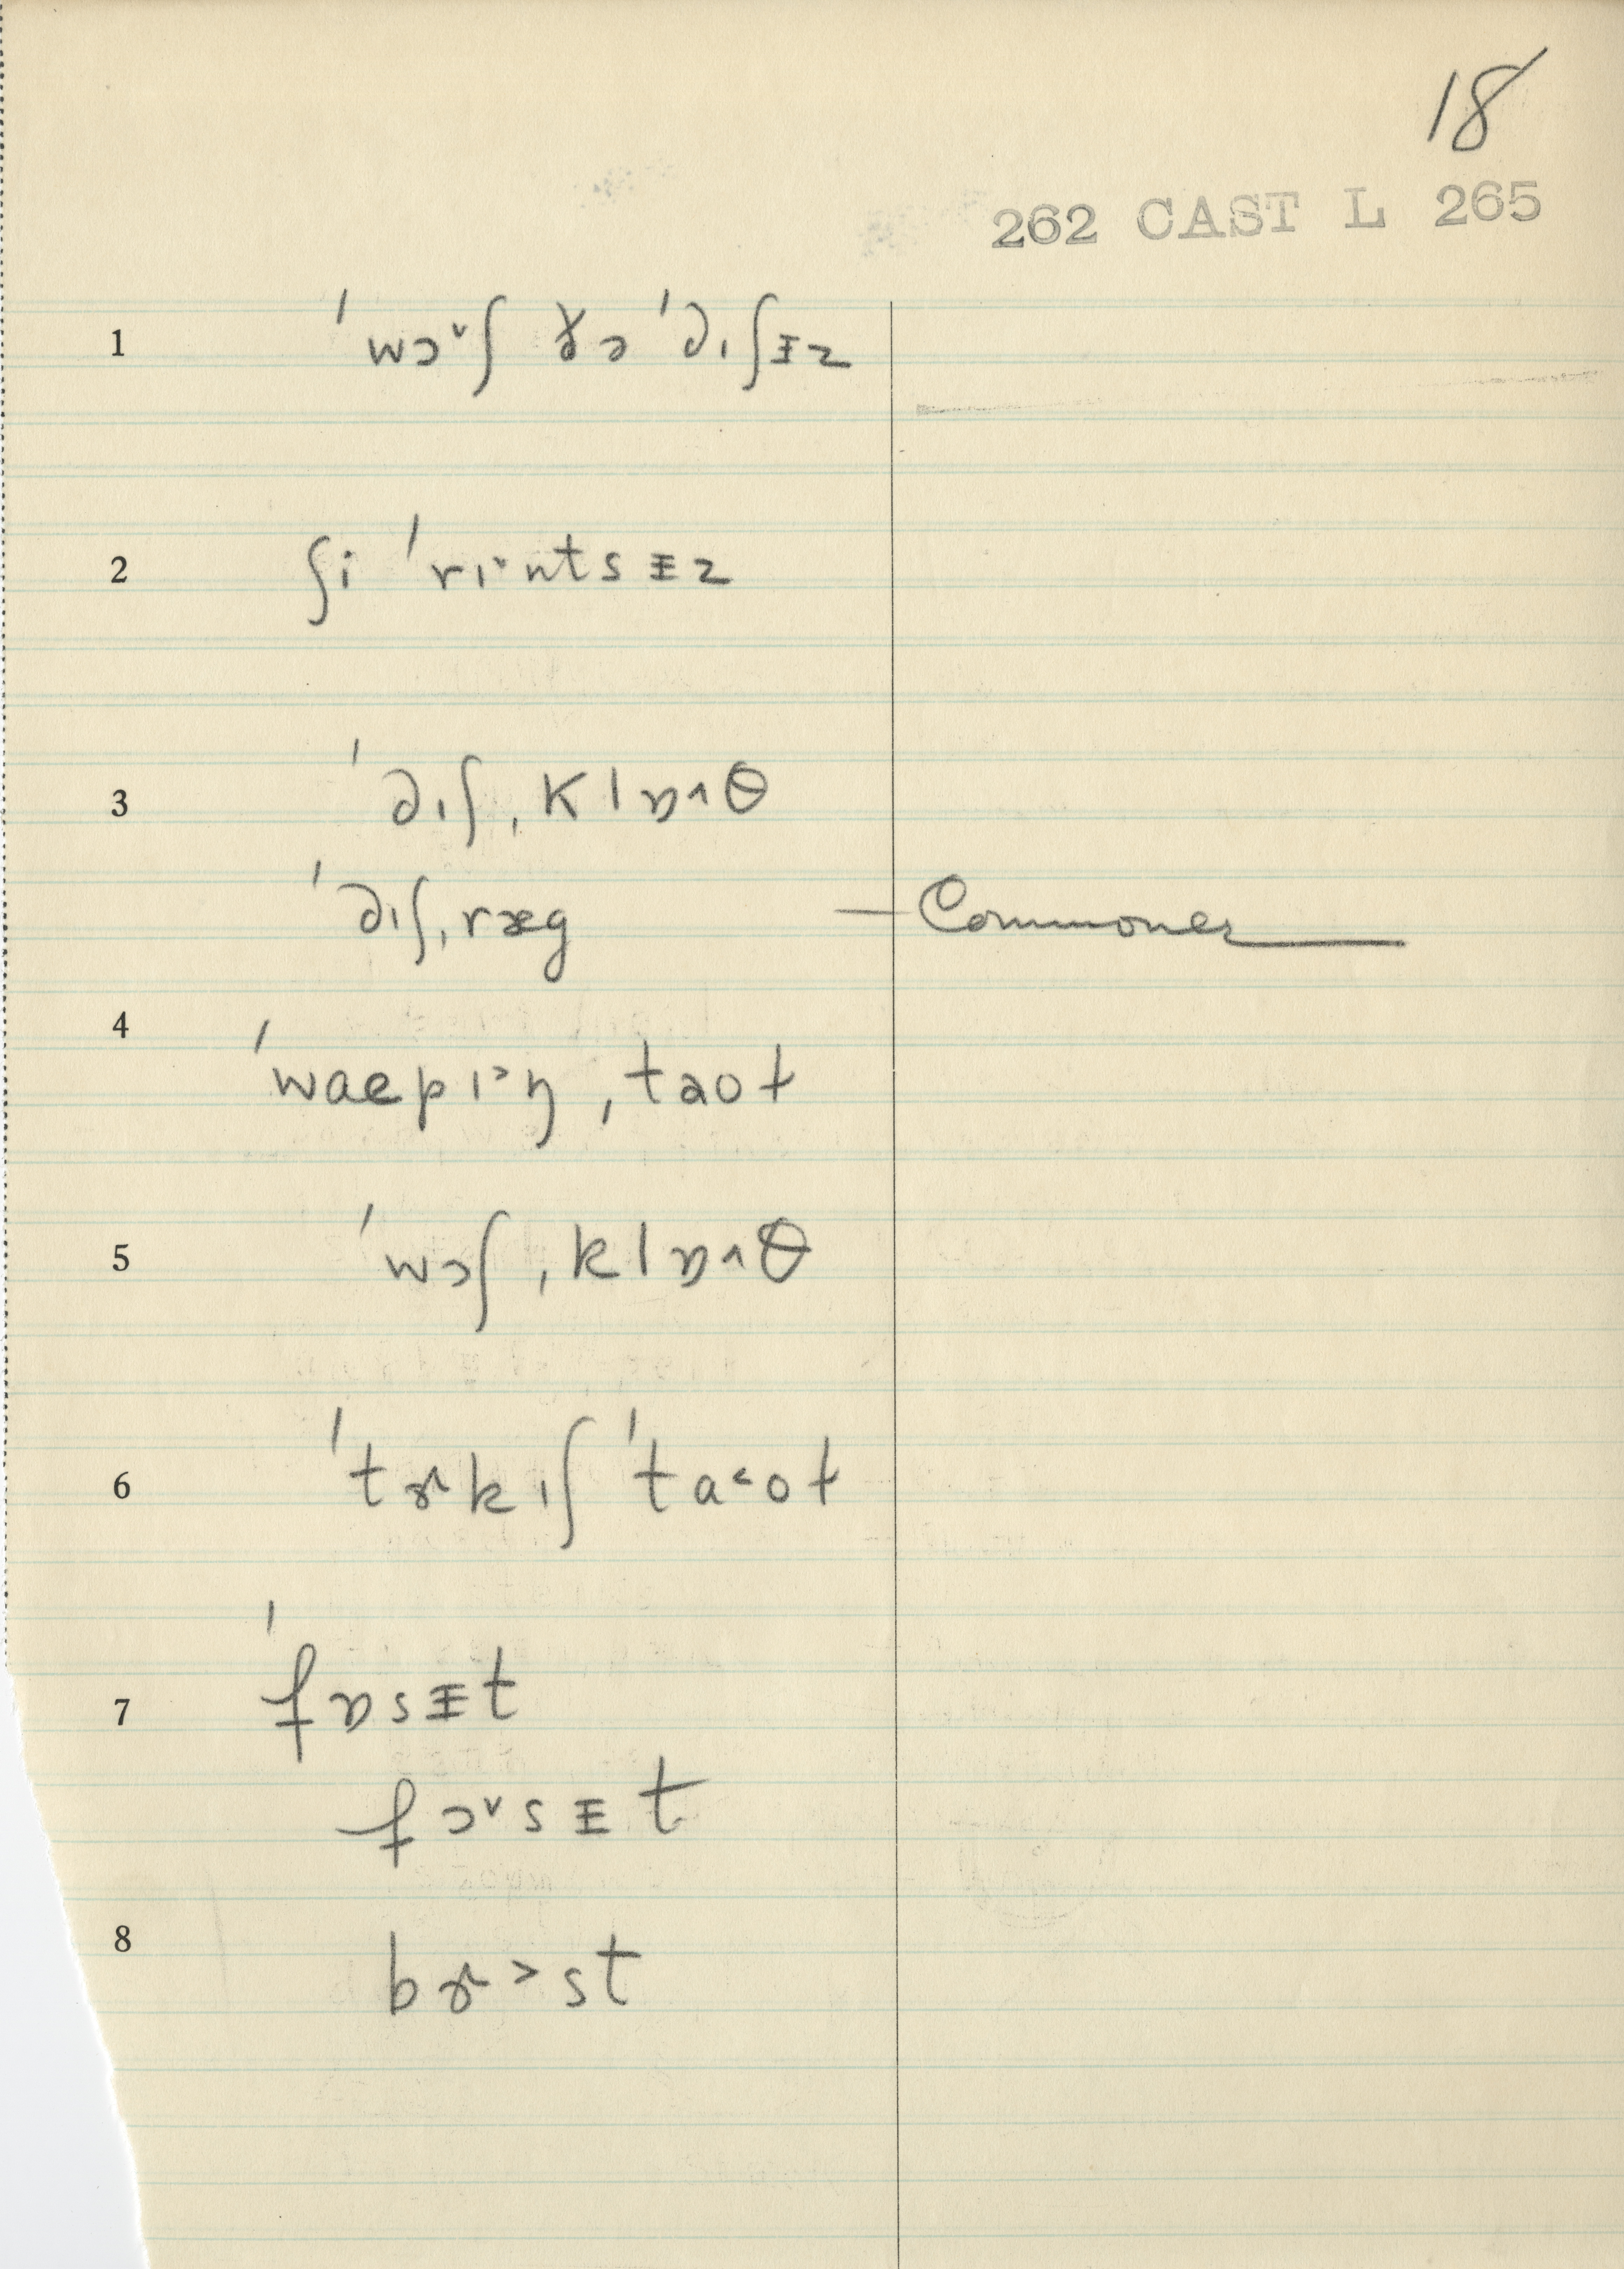 18
262 CAST L 265
1 ˈwɔ˅ʃ ðə ˈdɪʃɪz
2 ʃi ˈrɪ˃ntsɪz
3 ˈdɪʃˌklɒ˄θ
ˈdɪʃˌræg — Commoner
4 ˈwaepɪ˃ŋ ˌtaot
5 ˈwɔʃˌklɒ˄θ
6 ˈtɚkɪʃ ˈta˂ot
7 ˈfɒsɪt
fɔ˅sɪt
8 bɚ˃st